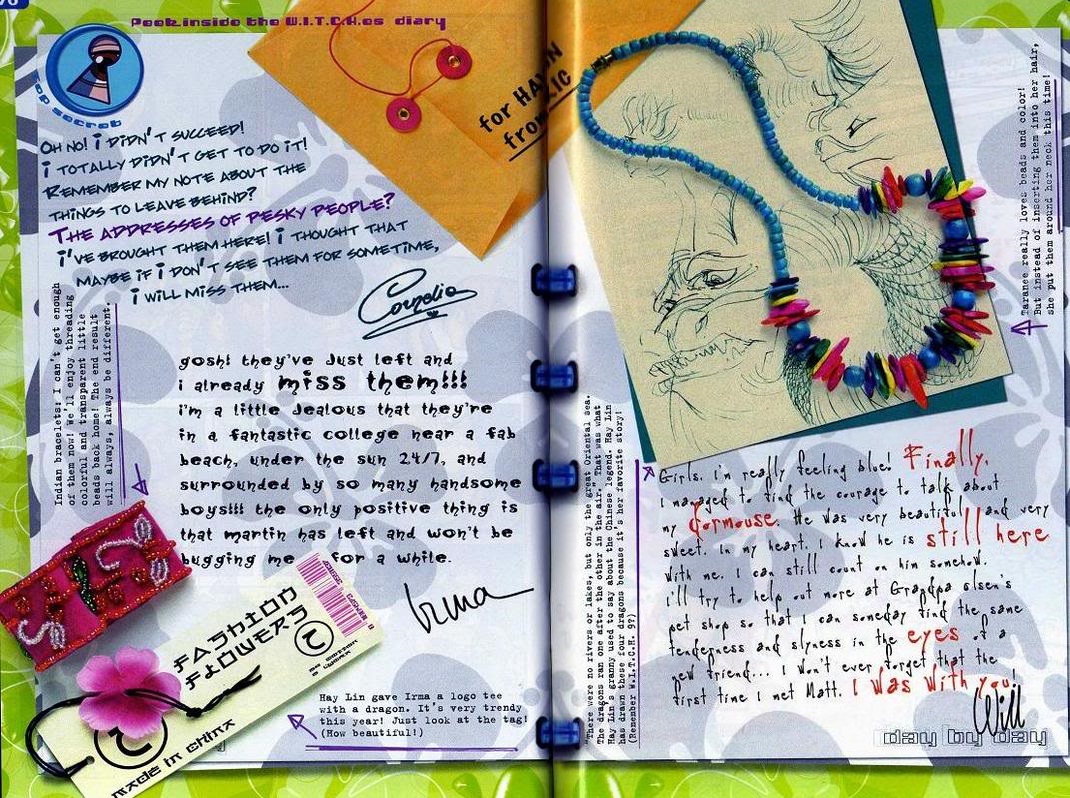 Peek inside the W.I.T.C.H.es diary
Top Secret
OH NO! I DIDN'T SUCCEED!
I TOTALLY DIDN'T GET TO DO IT!
REMEMBER MY NOTE ABOUT THE
THINGS TO LEAVE BEHIND?
THE ADDRESSES OF PESKY PEOPLE?
I'VE BROUGHT THEM HERE! I THOUGHT THAT
MAYBE IF I DON'T SEE THEM FOR SOMETIME,
I WILL MISS THEM...
Cornelia
Indian bracelets: I can't get enough
of them now! We'll enjoy threading
colorful and transparent little
beads back home! The end result
will always, always be different!
gosh! they've just left and
i already miss them!!!
i'm a little jealous that they're
in a fantastic college near a fab
beach, under the sun 24/7, and
surrounded by so many handsome
boys!!! the only positive thing is
that martin has left and won't be
bugging me for a while.
Irma
FASHION
FLOWERS
MADE IN CHINA
Hay Lin gave Irma a logo tee
with a dragon. It's very trendy
this year! Just look at the tag!
(How beautiful!)
for HAY LIN
from
Taranee really loves beads and color!
But instead of inserting them into her hair,
she put them around her neck this time!
"There were no rivers or lakes, but only the great Oriental sea.
The dragons ran one after the other in the air." That was what
Hay Lin's granny used to say about the Chinese legend. Hay Lin
has drawn these four dragons because it's her favorite story!
(Remember W.I.T.C.H. 9?)
Girls, I'm really feeling blue! Finally,
I managed to find the courage to talk about
my dormouse. He was very beautiful and very
sweet. In my heart, I know he is still here
with me. I can still count on him somehow.
I'll try to help out more at Grandpa Olsen's
pet shop so that I can someday find the same
tenderness and slyness in the eyes of a
new friend... I won't ever forget that the
first time I met Matt, I was with you.
Will
day by day